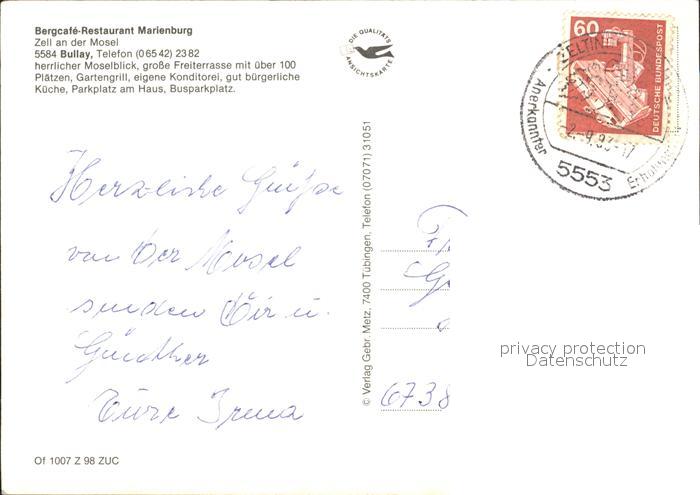 Bergcafé-Restaurant Marienburg
Zell an der Mosel
5584 Bullay, Telefon (0 65 42) 23 82
herrlicher Moselblick, große Freiterrasse mit über 100
Plätzen, Gartengrill, eigene Konditorei, gut bürgerliche
Küche, Parkplatz am Haus, Busparkplatz.
DIE QUALITÄTS
ANSICHTSKARTE
60
DEUTSCHE BUNDESPOST
ZELTIN
Anerkannter
2.-9.83-17
5553
Erholu
Herzliche Grüße
von der Mosel
senden Dir u.
Günther
Eure Irena
© Verlag Gebr. Metz, 7400 Tübingen, Telefon (07071) 31051
6738
privacy protection
Datenschutz
Of 1007 Z 98 ZUC